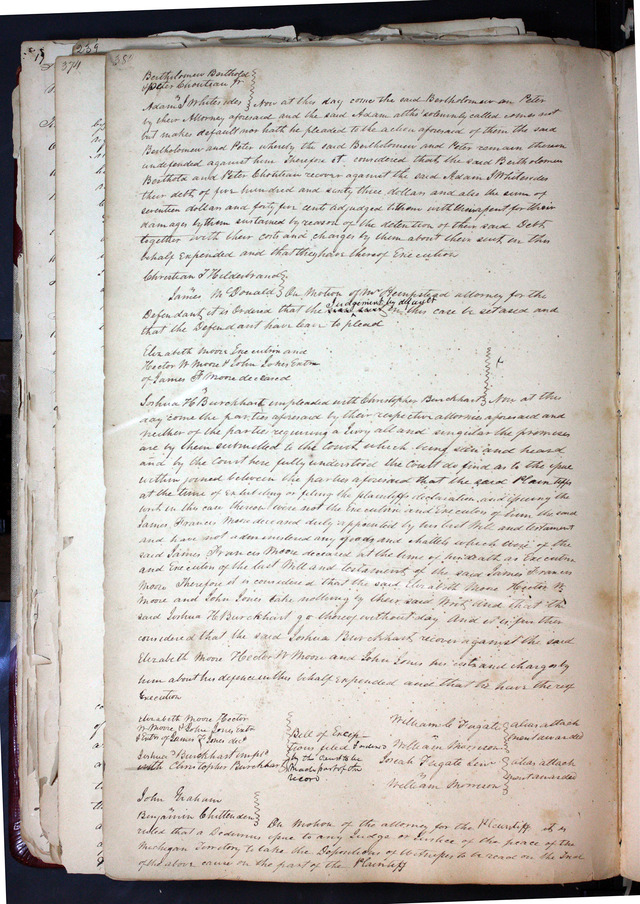 239
374
380
Bertholomew Berthold
& Peter Chouteau Jr
vs
Adam J Whitesides } Now at this day come the said Bertholomew an Peter
by their Attorney aforesaid and the said Adam altho solemnly called comes not
but makes default nor hath he pleaded to the action aforesaid of them the said
Bertholomew and Peter whereby the said Bertholomew and Peter remain therein
undefended against him Therefore it considered that the said Bertholomew
Berthold and Peter Chouteau recover against the said Adam J Whitesides
their debt of five hundred and sixty three dollars and also the sum of
seventeen dollars and forty five cents adjudged to them with their assent for their
damages by them sustained by reason of the detention of their said Debt
together with their costs and charges by them about their suit in this
behalf Expended and that they have thereof Execution
Christian T Hilderbrand
vs
James McDonald } On Motion of Mr Hempstead attorney for the
Defendant, it is Ordered that the Judgement by default in this case be set aside and
that the Defendant have leave to plead
Elizabeth Moore Executrix and
Hector W Moore & John Jones Extrs
of James F Moore deceased
vs
Joshua H Burckhart impleaded with Christopher Burckhart } Now at this
day come the parties aforesaid by their respective attornies aforesaid and
neither of the parties requiring a Jury all and singular the premises
are by them submitted to the Court which being seen and heard
and by the Court here fully understood the Court do find as to the issue
within joined between the parties aforesaid that the said Plaintiffs
at the time of exhibiting or filing the plaintiffs declaration and issuing the
writ in the case thereon were not the Executrix and Executors of him the said
James Francis Moore deceased duly appointed by his last Will and testament
and have not administered any goods and chattels which were of the
said James Francis Moore deceased at the time of his death as Executrix
and Executors of the last Will and testament of the said James Francis
Moore Therefore it is considered that the said Elizabeth Moore Hector W
Moore and John Jones take nothing by their said Writ and that the
said Joshua H Burckhart go thereof without day And it is further
considered that the said Joshua Burckhart, recover against the said
Elizabeth Moore Hector W Moore and John Jones his costs and charges by
him about his defence in this behalf expended and that he have thereof
Execution
Elizabeth Moore Hector
W Moore, & John Jones Extx
& Extrs of James F Jones decd
vs
Joshua H Burckhart impld
with Christopher Burckhart
Bill of Excep
tions filed & orderd
by the Court to be
made part of the
record
William G Fugate } alias attach
vs
William Morrison } ment awarded
Josiah Fugate Senr } alias attach
vs
William Morrison } ment awarded
John Graham
vs
Benjamin Chittenden } On Motion of the attorney for the Plaintiff it is
ruled that a Dedimus issue to any Judge or Justice of the peace of the
Michigan Territory to take the Depositions of Witnesses to be read on the Trial
of the above cause on the part of the Plaintiff